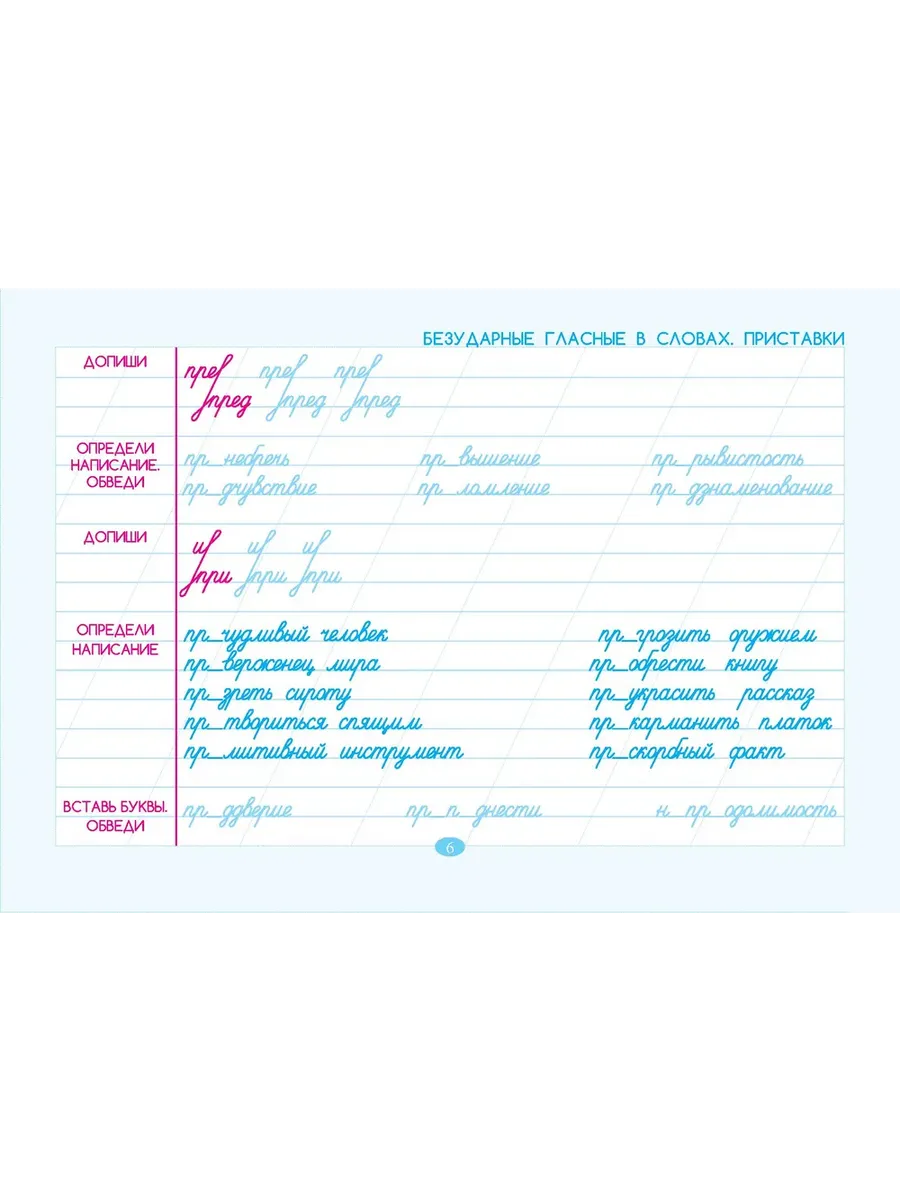 БЕЗУДАРНЫЕ ГЛАСНЫЕ В СЛОВАХ. ПРИСТАВКИ
ДОПИШИ
пре пре пре
пред пред пред
ОПРЕДЕЛИ НАПИСАНИЕ. ОБВЕДИ
пр_небречь пр_вышение пр_рывистость
пр_дчувствие пр_ломление пр_дзнаменование
ДОПИШИ
и и и
при при при
ОПРЕДЕЛИ НАПИСАНИЕ
пр_чудливый человек пр_грозить оружием
пр_верженец мира пр_обрести книгу
пр_зреть сироту пр_украсить рассказ
пр_твориться спящим пр_карманить платок
пр_митивный инструмент пр_скорбный факт
ВСТАВЬ БУКВЫ. ОБВЕДИ
пр_ддверие пр_п_днести н_пр_одолимость
6